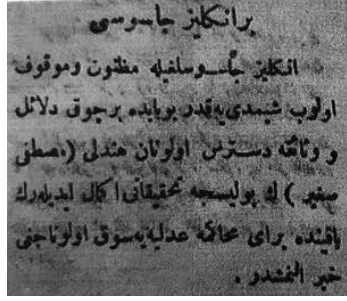 بر انكليز جاسوسى
انكليز جاسوسلغيله مظنون وموقوف
اولوب شيمدى‌يه‌قدر بوبابده برچوق دلائل
و وثائقه دسترس اولونان هندلى (مصطفى
صغير) ك پوليسجه تحقيقاتى اكمال ايديله‌رك
ياقينده براى محاكمه عدليه‌يه‌سوق اولوناجنى
خبر آلنمشدر .